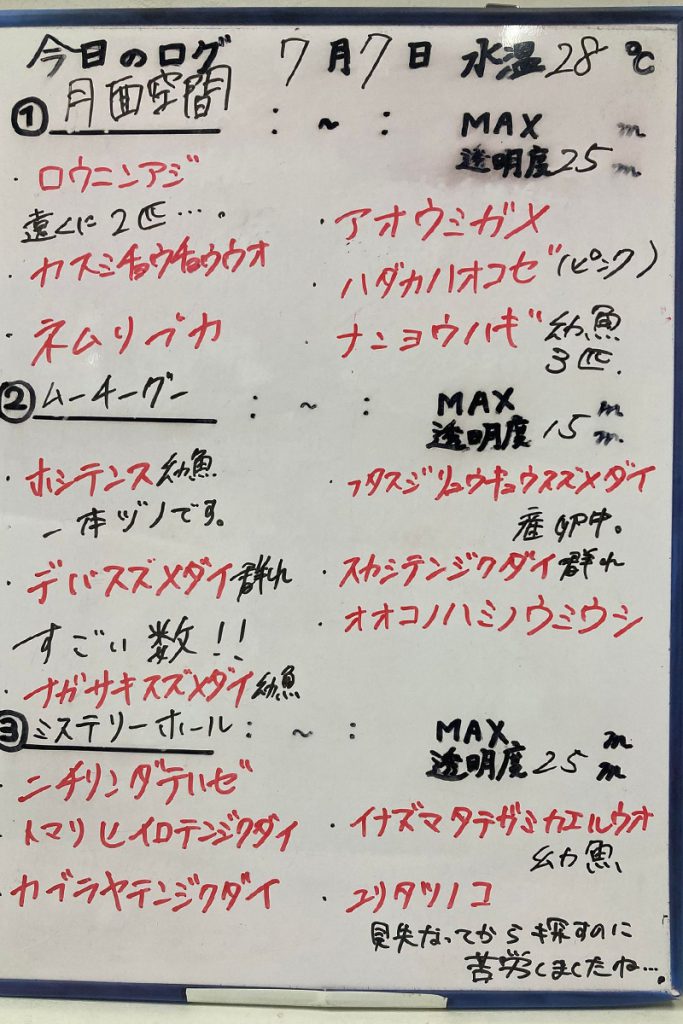 今日のログ 7月7日 水温28℃
① 月面空間 : ~ : MAX m
透明度25m
・ロウニンアジ
遠くに2匹…。
・カスミチョウチョウウオ
・ネムリブカ
・アオウミガメ
・ハダカハオコゼ(ピンク)
・ナンヨウハギ 幼魚
3匹.
② ムーチーグー : ~ : MAX m
透明度15m
・ホシテンス幼魚
一本ヅノです。
・デバスズメダイ群れ
すごい数!!
・ナガサキスズメダイ幼魚
・フタスジリュウキュウスズメダイ
産卵中。
・スカシテンジクダイ群れ
・オオコノハミノウミウシ
③ ミステリーホール : ~ : MAX m
透明度25m
・ニチリンダテハゼ
・トマリヒイロテンジクダイ
・カブラヤテンジクダイ
・イナズマタテガミカエルウオ
幼魚
・ユリタツノコ
見失なってから探すのに
苦労しましたね…。